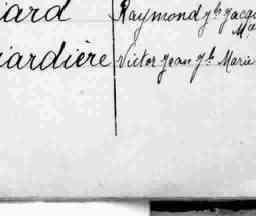 iard Raymond Jh Jacq
Ma
iardière Victor Jean Jh Marie